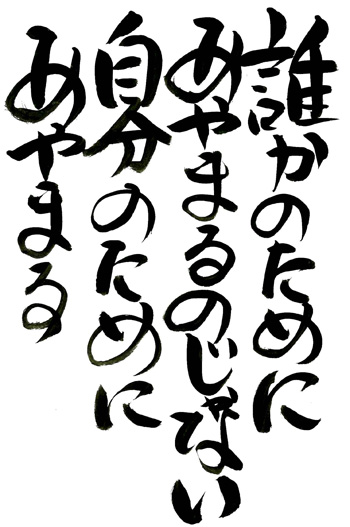 誰かのために
あやまるのじゃない
自分のために
あやまる